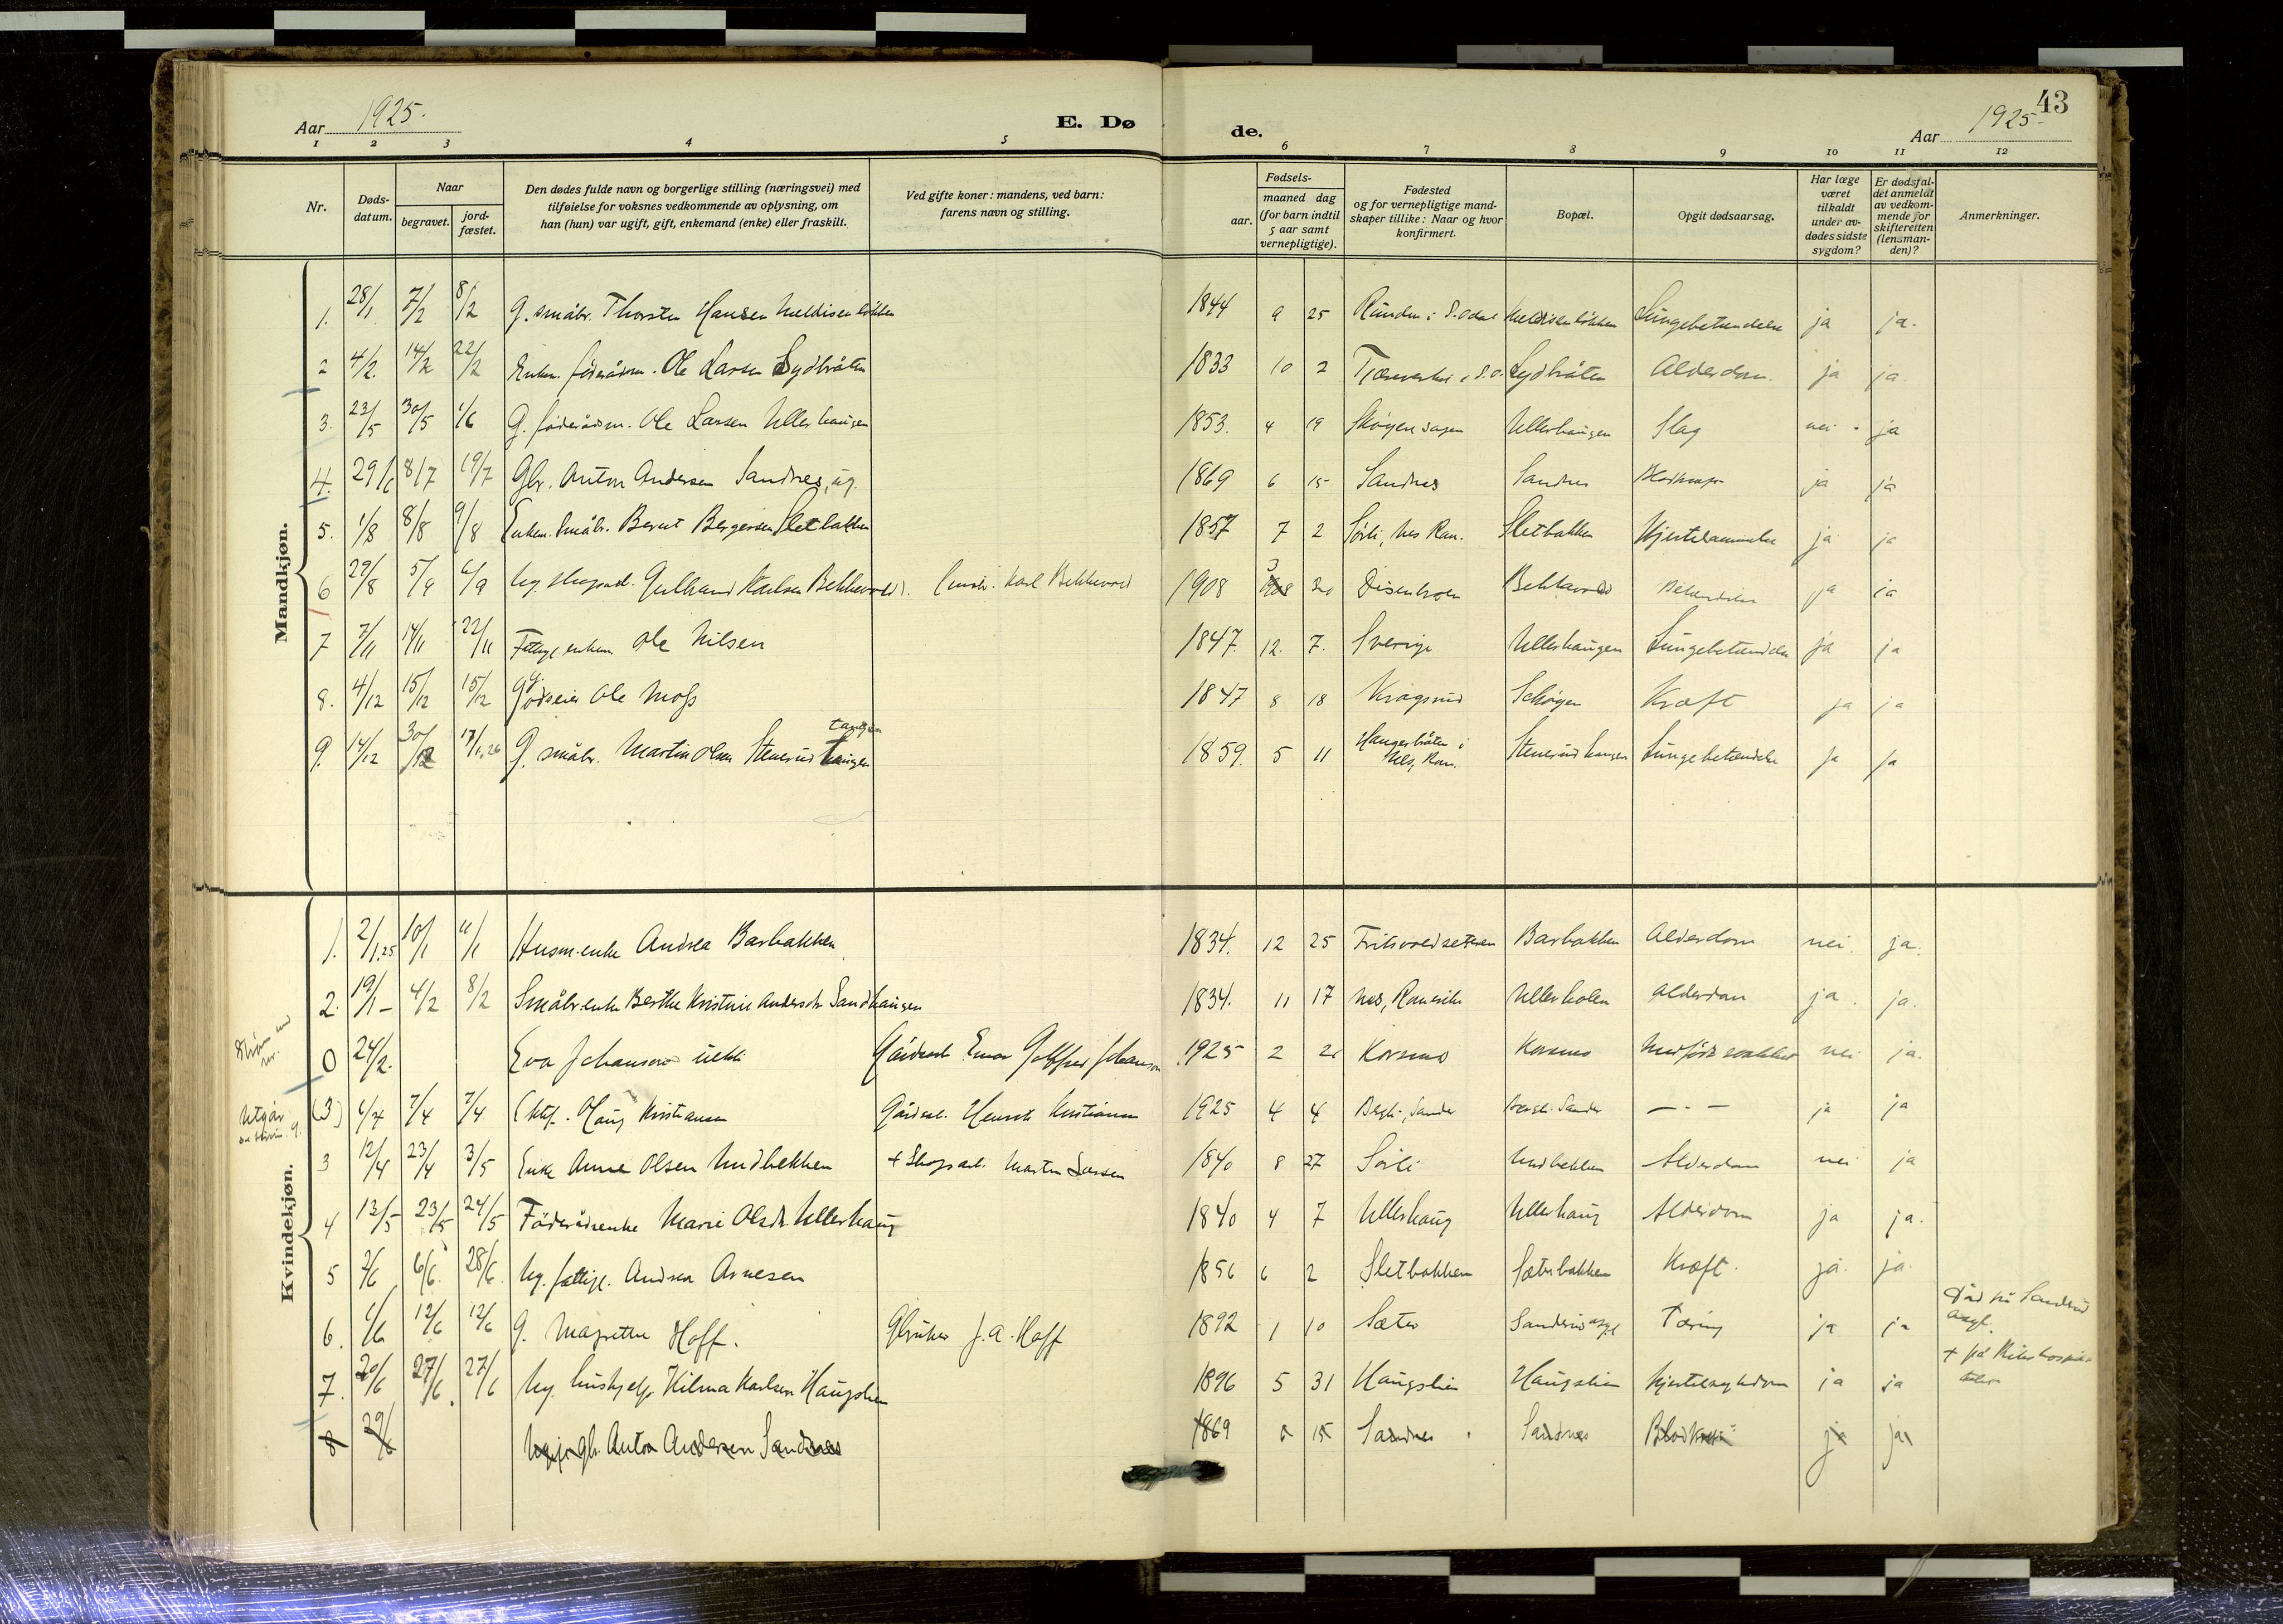 Aar 1925.
E. Døde.
Aar 1925.
43
1 2 3 4 5 6 7 8 9 10 11 12
Nr.
Døds-
datum.
Naar
begravet.
jord-
fæstet.
Den dødes fulde navn og borgerlige stilling (næringsvei) med
tilføielse for voksnes vedkommende av oplysning, om
han (hun) var ugift, gift, enkemand (enke) eller fraskilt.
Ved gifte koner: mandens, ved barn:
farens navn og stilling.
Fødsels-
aar.
maaned dag
(for barn indtil
5 aar samt
vernepligtige).
Fødested
og for vernepligtige mand-
skaper tillike: Naar og hvor
konfirmert.
Bopæl.
Opgit dødsaarsag.
Har læge
været
tilkaldt
under av-
dødes sidste
sygdom?
Er dødsfal-
det anmeldt
av vedkom-
mende for
skifteretten
(lensman-
den)?
Anmerkninger.
Mandkjøn.
1. 28/1 7/2 8/2 G. småbr. Thorsten Hansen 1844 9 25 S. Odal Lungebetændelse ja ja.
2 4/2. 14/2 22/2 Enkem. føderådsm. Ole Larsen Sydbråten 1833 10 2 Sydbråten Alderdom. ja ja.
3. 23/5 30/5 1/6 G. føderådsm. Ole Larsen Ullerhaugen 1853. 4 19 Ullerhaugen Slag nei - ja
4. 29/6 8/7 19/7 Gbr. Anton Andersen Sandnes, ug. 1869 6 15 Sandnes Sandnes ja ja
5. 1/8 8/8 9/8 Enkem. Småbr. Bernt Bergersen Sletbakken 1857 7 2 Sørli, Nes Rom. Sletbakken ja ja
6 29/8 5/9 6/9 Ug. Karlsen Bekkevold. Karl Bekkevold 1908 3 Bekkevold ja ja
7 7/11 14/11 22/11 enkem. Ole Nilsen 1847. 12. 7. Sverige Ullerhaugen Lungebetændelse ja ja
8. 4/12 15/12 15/12 Godseier Ole Moss 1847 8 18 Kragsrud Kræft ja ja
9. 14/12 30/12 17/1, 26 G. småbr. Martin Olsen Stenerud tangen 1859. 5 11 i Nes, Rom. Lungebetændelse ja ja
Kvindekjøn.
1. 2/1.25 10/1 11/1 Husm.enke Andrea Barbakken 1834. 12 25 Barbakken Alderdom nei. ja.
2. 19/1 - 4/2 8/2 Småbr.enke Berthe Kristine Andersdt. Sandhaugen 1834. 11 17 Nes, Romerike Ullerholen Alderdom ja. ja.
0 24/2. Eva Johansen Johansen 1925 2 Korsmo Korsmo nei ja.
Utgår
(3) 6/4 7/4 7/4 Kristiansen Kristiansen 1925 4 4 Sander Sander — · — ja ja
3 12/4 23/4 3/5 Enke Anne Olsen + Skogsarb. Martin Larsen 1840 8 27 Sørli Alderdom nei ja
4 13/5 23/5 24/5 Føderådsenke Marie Olsdt. Ullerhaug 1840 4 7 Ullerhaug Ullerhaug Alderdom ja ja.
5 2/6 6/6. 28/6. Ug. fattigl. Andrea Arnesen 1856 6 2 Sletbakken Kræft. ja. ja.
6. 1/6 12/6 12/6 G. Magrethe Hoff. Gbruker J. A. Hoff 1892 1 10 Sæter Sanderud asyl Tæring ja ja Død på Sanderud asyl.
7. 20/6 27/6. 27/6 Ug. hushjelp Hilma Karlsen Haugslien 1896 5 31 Haugslien Haugslien Hjertesygdom ja ja + på Rikshospitalet
8 29/6 gbr. Anton Andersen Sandnes 1869 6 15 Sandnes Sandnes ja ja